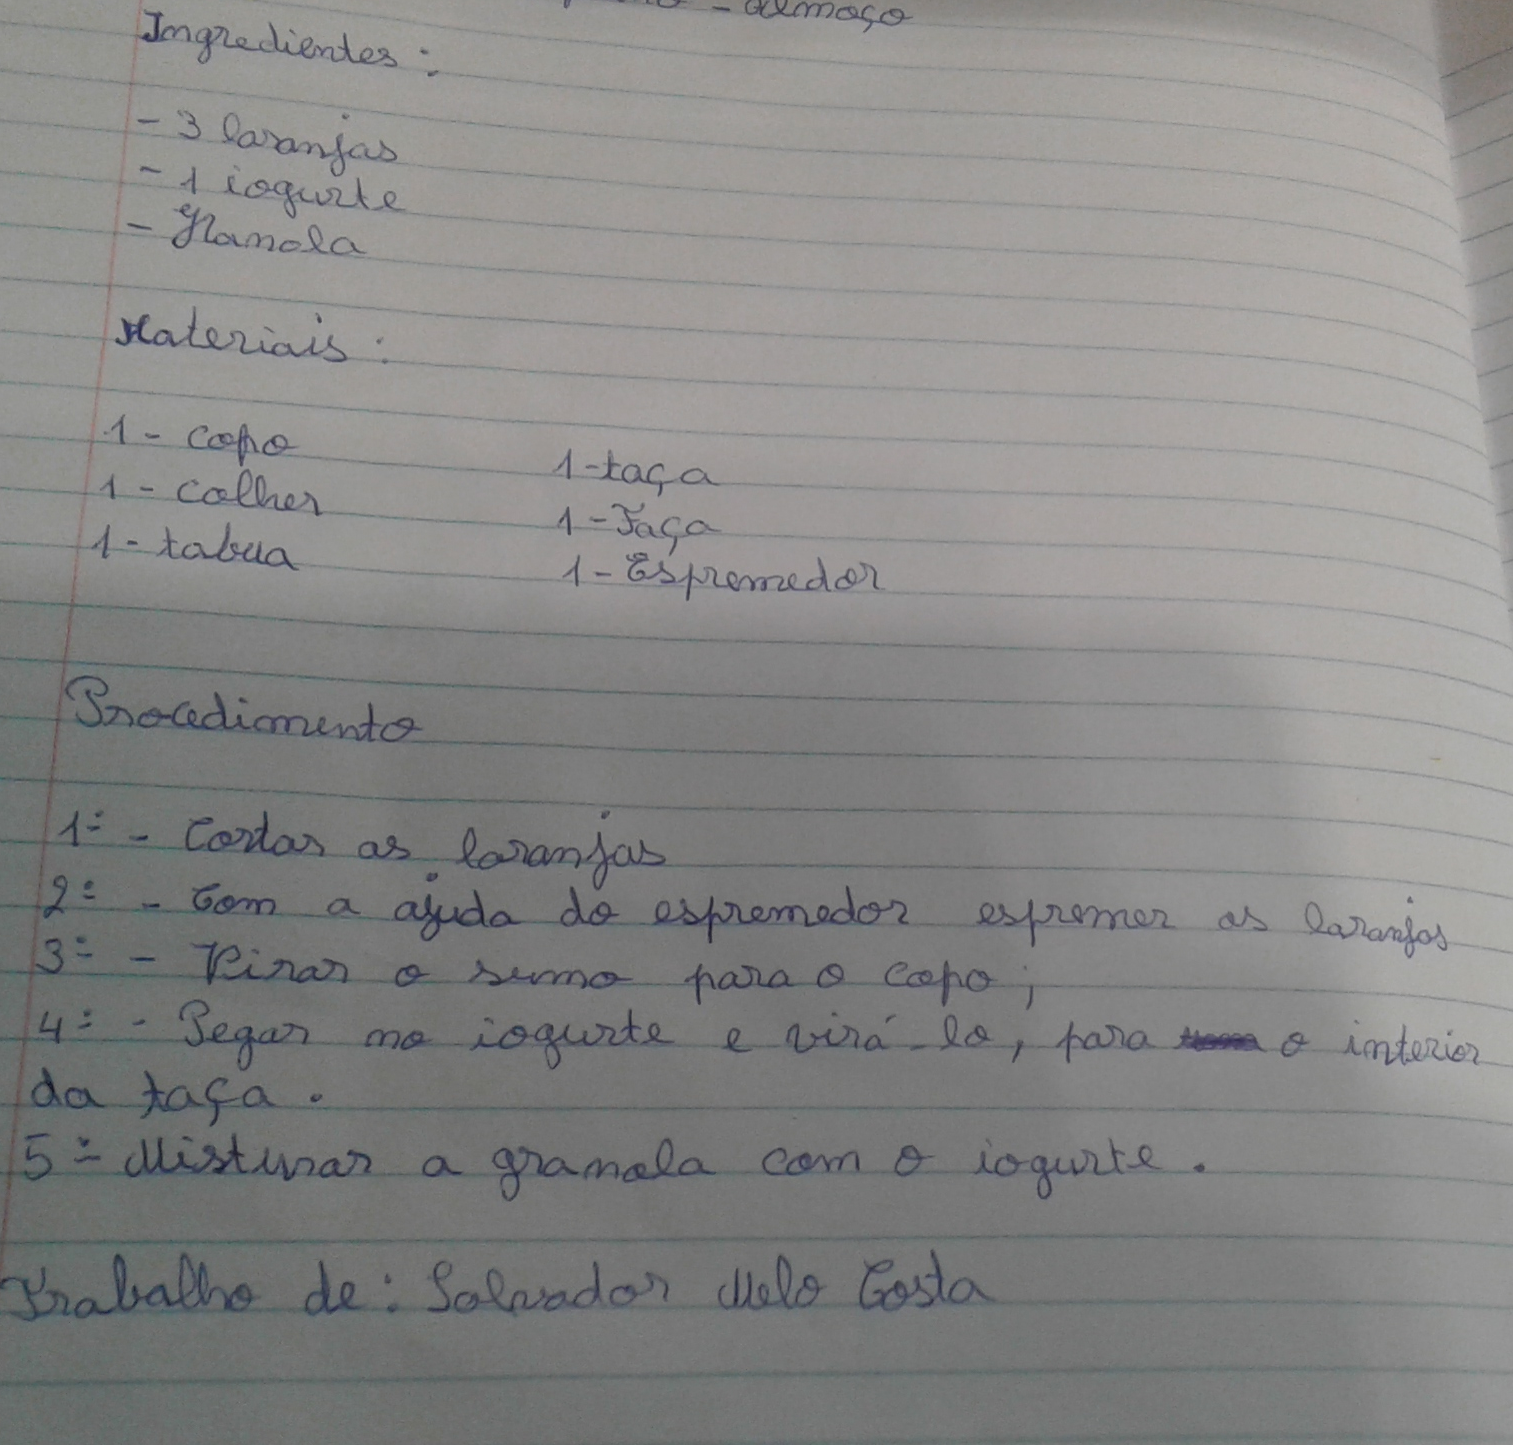 - almoço
Ingredientes :
- 3 laranjas
- 1 iogurte
- Granola
Materiais :
1 - copo
1 - colher
1 - tabua
1 - taça
1 - Faça
1 - Espremedor
Procedimento
1º - Cortar as laranjas
2º - Com a ajuda do espremedor espremer as laranjas
3º - Virar o sumo para o copo ;
4º - Pegar no iogurte e virá-lo, para o interior
da taça .
5º - Misturar a granola com o iogurte .
Trabalho de : Salvador Melo Costa